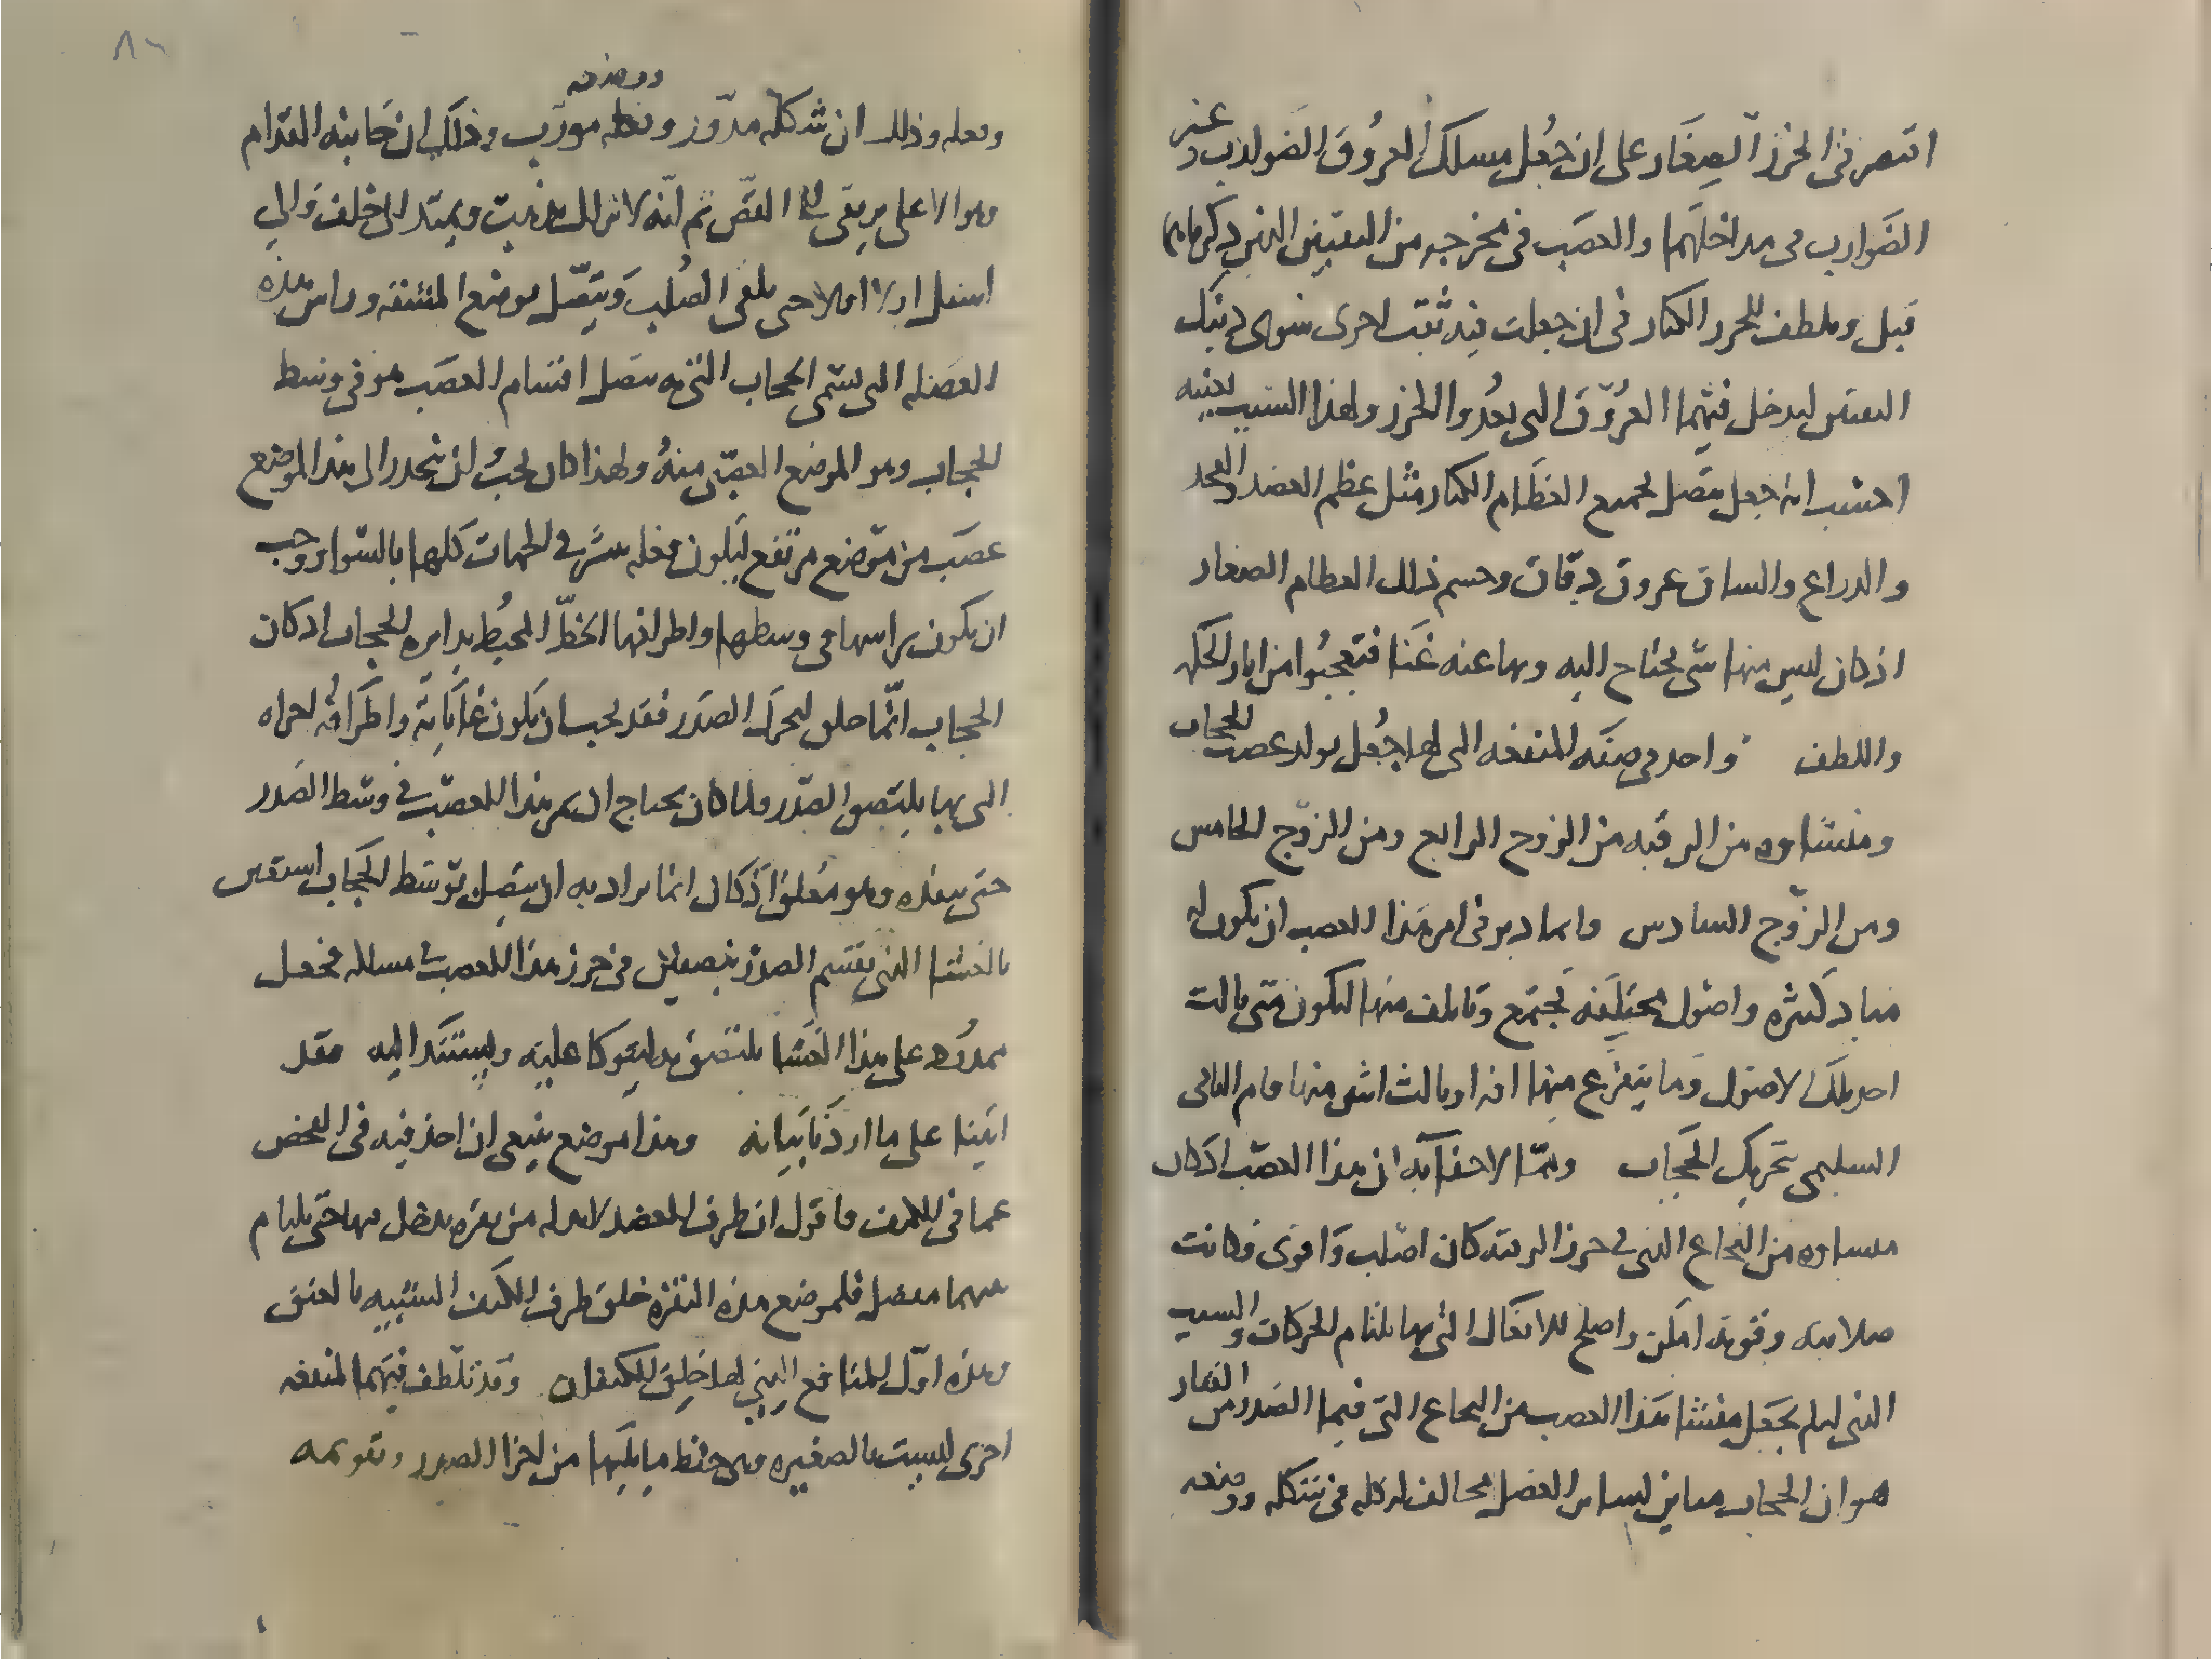 اقتصر فى الخرز الصغار على ان جعل مسلك العروق الضوارب وغير
الضوارب فى مداخلها والعصب فى مخرجه من الثقبتين الذين ذكرناهما
قبل وتلطف للخرز الكبار فى ان جعلت فيه ثقب اخرى سوى ذينك
الثقبتين ليدخل فيهما العروق التى تغدوا الخرز ولهذا السبب بعينه
احسب انه جعل يتصل بجميع العظام الكبار مثل عظم العضد والفخد
والدراع والساق عروق دقاق وحسم ذلك العظام الصغار
اذ كان ليس منها شى يحتاج اليه وبها عنه غنا فتعجبوا من اثار الحكمه
واللطف واحد فى صفه المنفعه التى لها جعل تولد عصب الحجاب
ومنشاوه من الرقبه من الزوج الرابع ومن الزوج الخامس
ومن الزوج السادس وانما دبر فى امر هذا العصب ان يكون له
مباد كثيره واصول مختلفه تجتمع وتاتلف منها ليكون متى نالت
احد تلك الاصول وما يتفرع منها افه او نالت اثنين منها قام الباقى
السليم بتحريك الحجاب ومما لا خفا به ان هذا العصب اذ كان
منشاوه من النخاع الذى فى خرز الرقبه كان اصلب واقوى وكانت
صلابته وقوته امكن واصلح للافعال التى بها تلتام الحركات والسبب
الذى له لم يجعل منشا هذا العصب من النخاع الذى فيما الصدر من الفقار
هو ان الحجاب مباين لساير العضل مخالف له كله فى شكله ووضعه
ووضعه
وفعله وذلك ان شكله مدور وفعله مورب وذلك ان جانبه القدام
وهو الاعلى يرتقى الى القص ثم انه لا يزال يذهب ويمتد الى خلف والى
اسفل اولا اولا حتى يلقى الصلب ويتصل بموضع المتنه وراس هذه
العضله التى تسمى الحجاب الذى به يتصل اقسام العصب هو فى وسط
الحجاب وهو الموضع العصبى منه ولهذا كان يجب ان ينحدر الى هذا الموضع
عصب من موضع مرتفع ليكون فعله يسرى فى الجهات كلها بالسوا ووجب
ان يكون راسها فى وسطها واطرافها الخط المحيط بدايره الحجاب اذ كان
الحجاب انما خلق ليحرك الصدر فقد يجب ان يكون غاياته واطرافه اجزاه
التى بها يلتصق الصدر ولما كان يحتاج ان يمر هذا العصب فى وسط الصدر
حتى ينفذه وهو معلق اذ كان انما يراد به ان يتصل بوسط الحجاب استعين
بالغشا الذى يقسم الصدر بنصفين فى حرز هذا العصب فى مسلكه فجعل
ممدود على هذا الغشا يلتصق به ليتوكا عليه ويستند اليه فقد
اتينا على ما اردنا بيانه وهذا موضع ينبغى ان اخذ فيه فى الفحص
عما فى الكتف فاقول ان طرف العضد لابد له من نقره يدخل فيها حتى يلتام
منهما مفصل فلموضع هذه النقره خلق طرف الكتف الشبيه بالعنق
وهذه اول المنافع التى لها خلق الكتفان وقد تلطف فيهما لمنفعه
اخرى ليست بالصغيره وهى حفظ ما يليها من اجزا الصدر وتقويمه